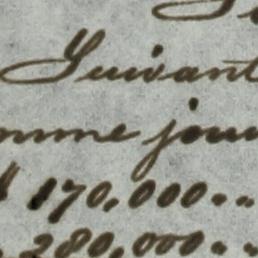 Suivant
omme jour
170,000..
280,000..